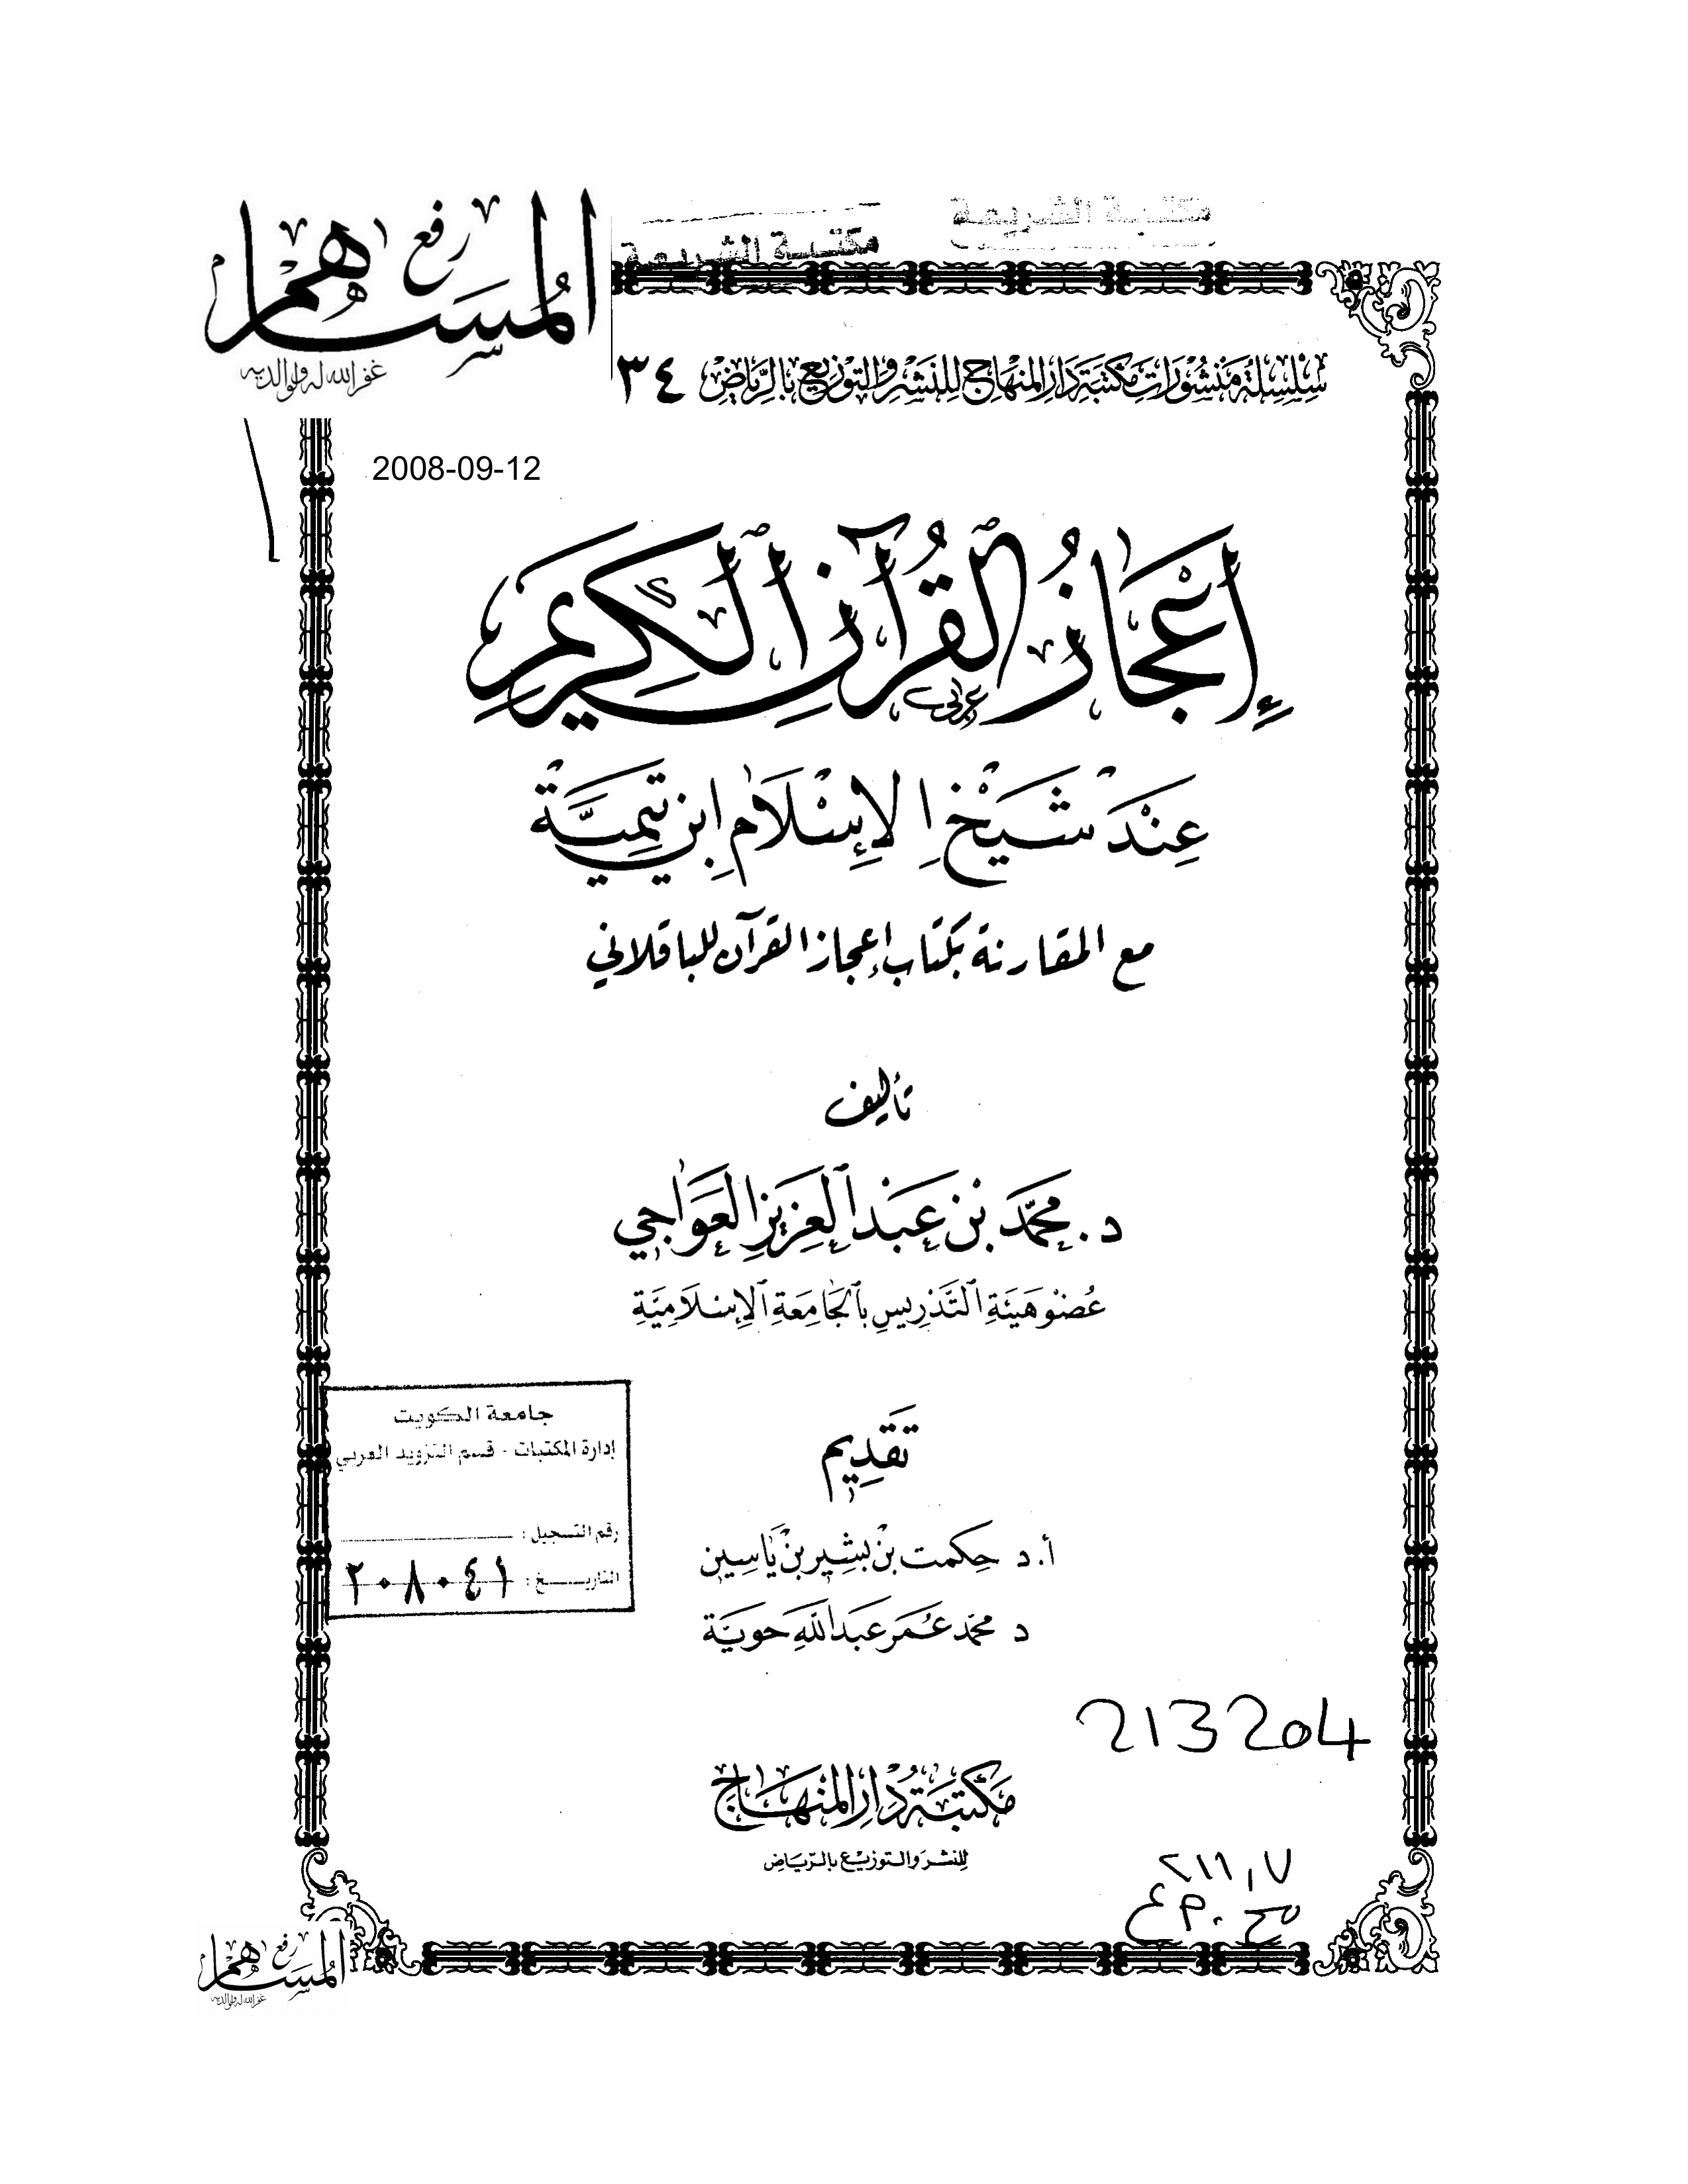 رفع
المساهم
غفر الله له ولوالديه
مكتبة الشريعة
مكتبة الشريعة
سِلْسِلَةُ مَنْشُورَاتِ مَكْتَبَةِ دَارِ المِنْهَاجِ لِلنَّشْرِ وَالتَّوْزِيعِ بِالرِّيَاضِ ٣٤
2008-09-12
إِعْجَازُ القُرْآنِ الكَرِيمِ
عربي
عِنْدَ شَيْخِ الإِسْلَامِ ابْنِ تَيْمِيَّةَ
مع المقارنة بكتاب إعجاز القرآن للباقلاني
تأليف
د. مُحَمَّد بْن عَبْد العَزِيزِ العَوَاجِي
عُضْو هَيْئَةِ التَّدْرِيسِ بِالجَامِعَةِ الإِسْلَامِيَّةِ
جامعة الكويت
إدارة المكتبات - قسم التزويد العربي
رقم التسجيل :
التاريخ : ٢٠٨٠٤١
تَقْدِيم
أ.د حِكْمَت بْن بَشِير بْن يَاسِين
د مُحَمَّد عُمَر عَبْد اللَّه حَوَيَّة
213204
مَكْتَبَةُ دَارِ المِنْهَاجِ
لِلنَّشْرِ وَالتَّوْزِيعِ بِالرِّيَاضِ
٢١١,٧
رفع
المساهم
غفر الله له ولوالديه